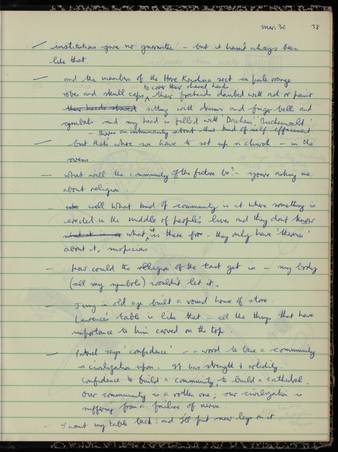 mar. 30 38
institutions give no guarantee - but it hasn't always been
like that
and the members of the Hare Krishna sect in pale orange
to cover their shaved heads
robe and skull caps, their foreheads daubed with red or paint
sitting with drums and finger bells and
cymbals and my head is filled with Dachau, Buchenwald
- there's an inhumanity about that kind of self effacement
but that's where we have to set up a church - in the
room
what will the community of the future be' - you're asking me
about religion
well what kind of community is it where something is
erected in the middle of people's lives and they don't know
what it is there for - they only have 'theories'
about it, suspicions
how could the religion of the east get in - my body
(all my symbols) wouldn't let it.
Jung in old age built a round house of stone
Lawrence's table is like that - all the things that have
importance to him carved on the top.
Patrick says 'confidence' - a word to base a community
a civilization upon. It has strength & solidity.
Confidence to build a community, to build a cathedral.
Our community is a rotten one; our civilization is
suffering from a failure of nerve
I want my table back and put new legs on it